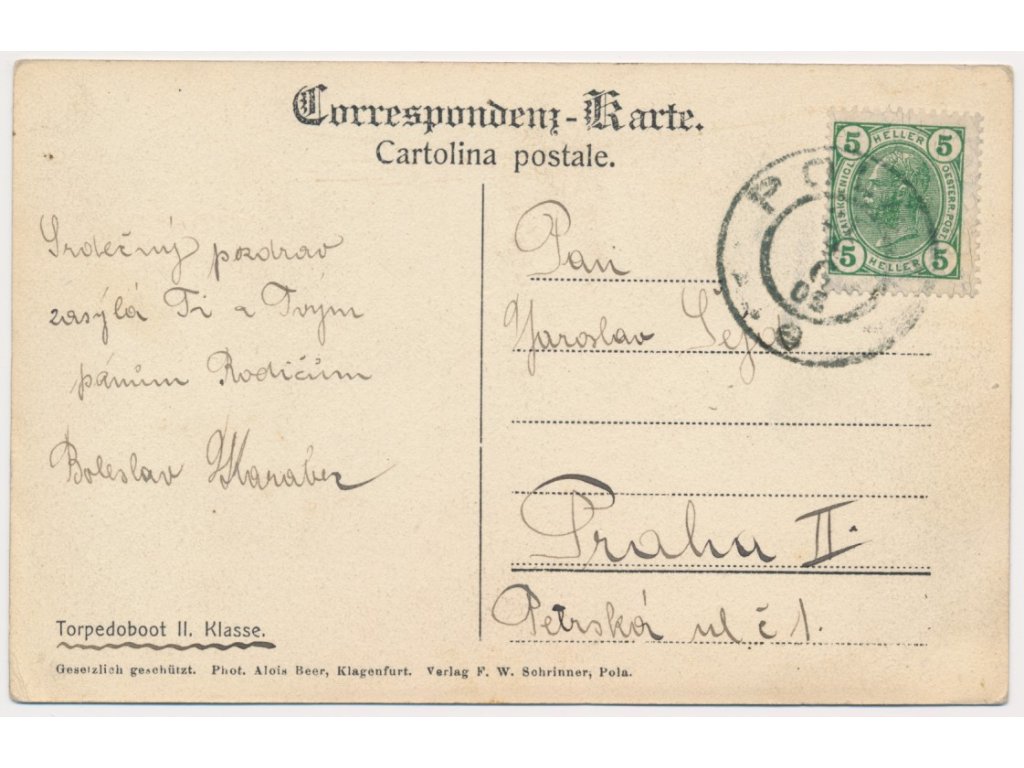 Correspondenz-Karte.
Cartolina postale.
5 HELLER 5
KAIS. KOENIGL. OESTERR. POST
5 HELLER 5
Srdečný pozdrav
zasýlá Ti a Tvým
pánům Rodičům
Boleslav
Pan
Yaroslav
Praha II.
Petrská ul č 1.
Torpedoboot II. Klasse.
Gesetzlich geschützt. Phot. Alois Beer, Klagenfurt. Verlag F. W. Schrinner, Pola.